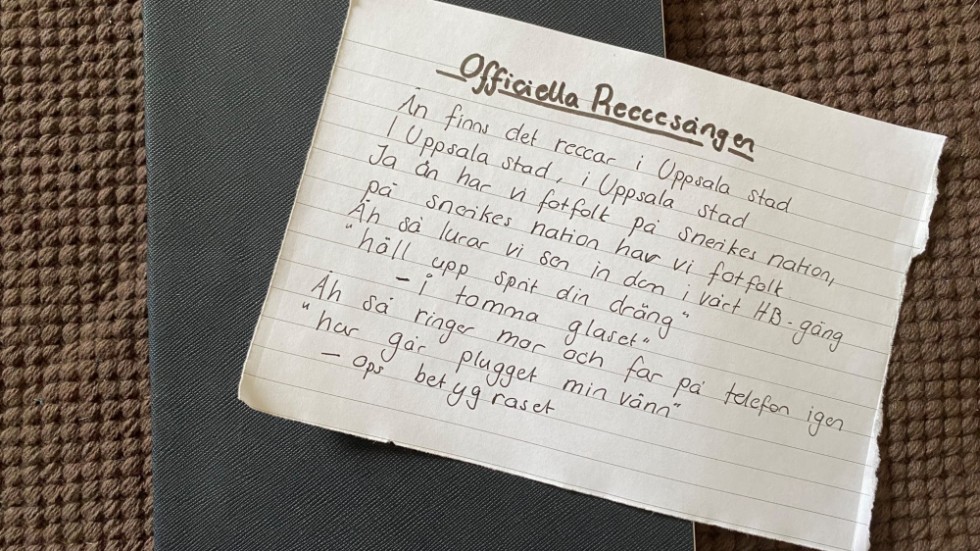 Officiella Reccesången
Än finns det reccar i Uppsala stad
I Uppsala stad, i Uppsala stad
Ja än har vi fotfolk på snerikes nation,
på snerikes nation har vi fotfolk
Åh så lurar vi sen in dem i vårt HB-gäng
"håll upp sprit din dräng"
- i tomma glaset"
Åh så ringer mor och far på telefon igen
"hur går plugget min vänn"
- ops betyg raset